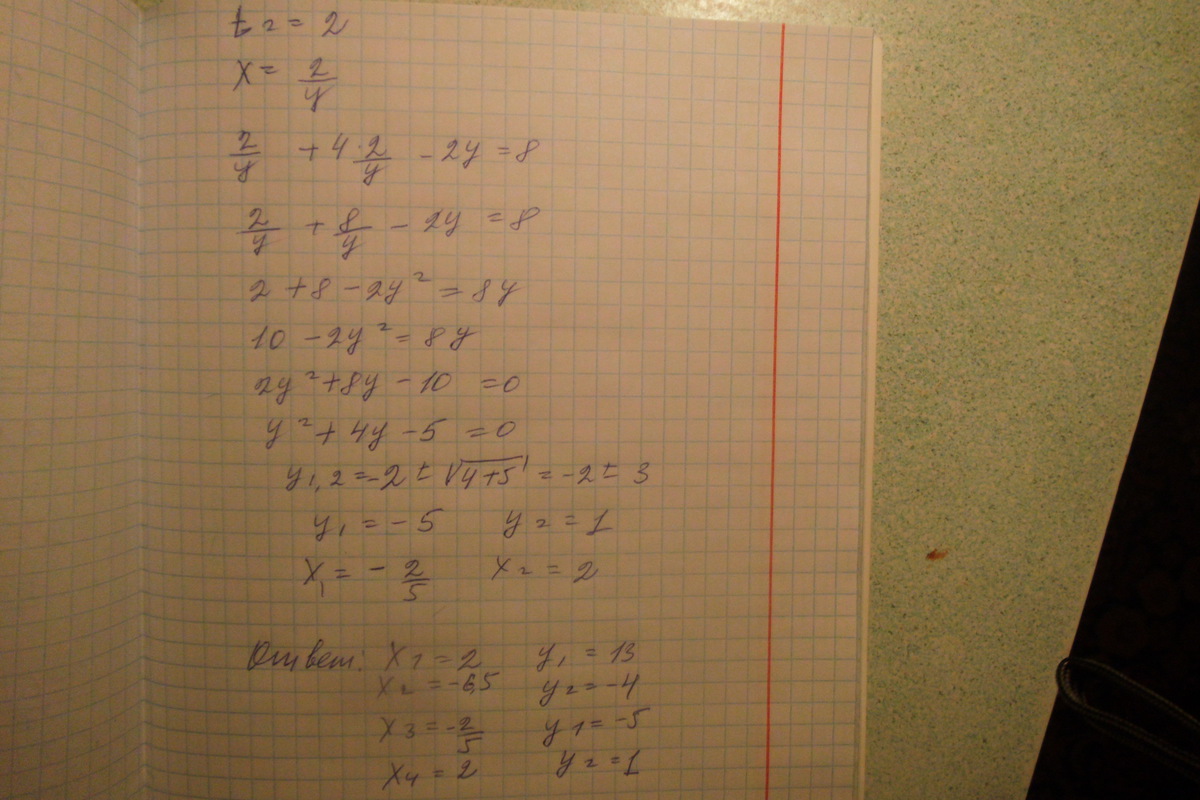 t₂ = 2
x = 2/y
2/y + 4·2/y - 2y = 8
2/y + 8/y - 2y = 8
2 + 8 - 2y² = 8y
10 - 2y² = 8y
2y² + 8y - 10 = 0
y² + 4y - 5 = 0
y₁,₂ = -2 ± √(4+5) = -2 ± 3
y₁ = -5 y₂ = 1
x₁ = -2/5 x₂ = 2
Ответ: x₁ = 2 y₁ = 13
x₂ = -6,5 y₂ = -4
x₃ = -2/5 y₁ = -5
x₄ = 2 y₂ = 1